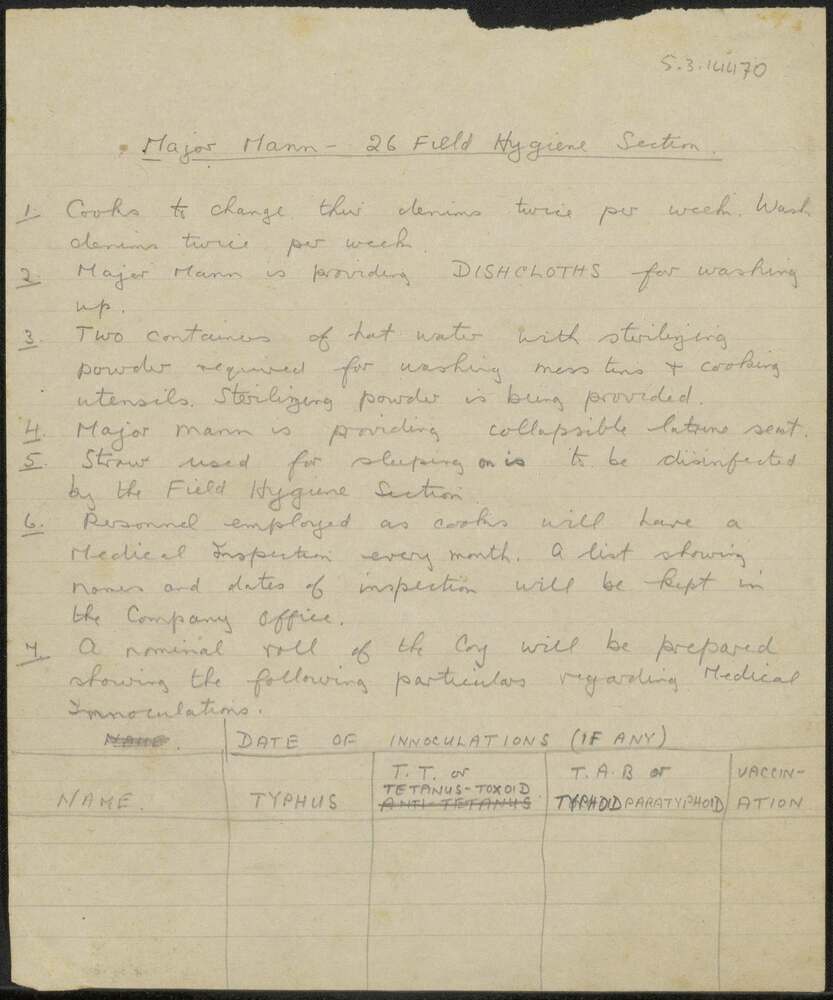 S.3.144170
Major Mann - 26 Field Hygiene Section.
1. Cooks to change their denims twice per week. Wash
denims twice per week.
2. Major Mann is providing DISHCLOTHS for washing
up.
3. Two containers of hot water with sterilizing
powder required for washing mess tins + cooking
utensils. Sterilizing powder is being provided.
4. Major Mann is providing collapsible latrine seat.
5. Straw used for sleeping on is to be disinfected
by the Field Hygiene Section.
6. Personnel employed as cooks will have a
Medical Inspection every month. A list showing
names and dates of inspection will be kept in
the Company Office.
7. A nominal roll of the Coy will be prepared
showing the following particulars regarding Medical
Innoculations.
NAME. DATE OF INNOCULATIONS (IF ANY)
T.T. or T.A.B or VACCIN-
NAME. TYPHUS TETANUS-TOXOID TYPHOID PARATYPHOID ATION
ANTI-TETANUS